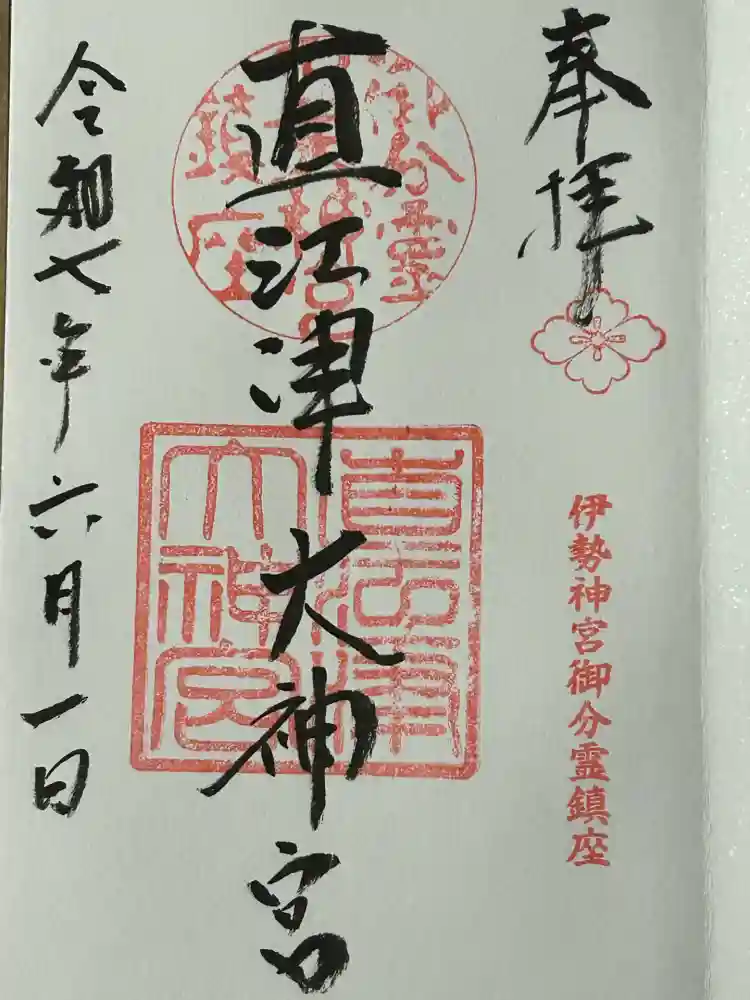 奉拝
伊勢神宮御分霊鎮座
直江津大神宮
直江津大神宮
令和七年六月一日